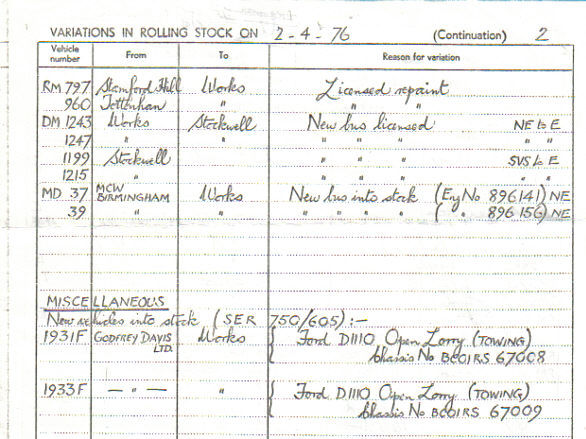 VARIATIONS IN ROLLING STOCK ON 2-4-76 (Continuation) 2
Vehicle number From To Reason for variation
RM 797 Stamford Hill Works Licensed repaint
960 Tottenham " " "
DM 1243 Works Stockwell New bus licensed NE to E
1247 " " " " " " "
1199 Stockwell " " " SVS to E
1215 " " " " " "
MD 37 MCW BIRMINGHAM Works New bus into stock (Eng No 896141) NE
39 " " " " " " ( " 896150) NE
MISCELLANEOUS
New vehicles into stock (SER 750/605):-
1931F GODFREY DAVIS LTD. Works { Ford D1110 Open Lorry (TOWING)
Chassis No BC01RS 67008
1933F — " — " { Ford D1110 Open Lorry (TOWING)
Chassis No BC01RS 67009